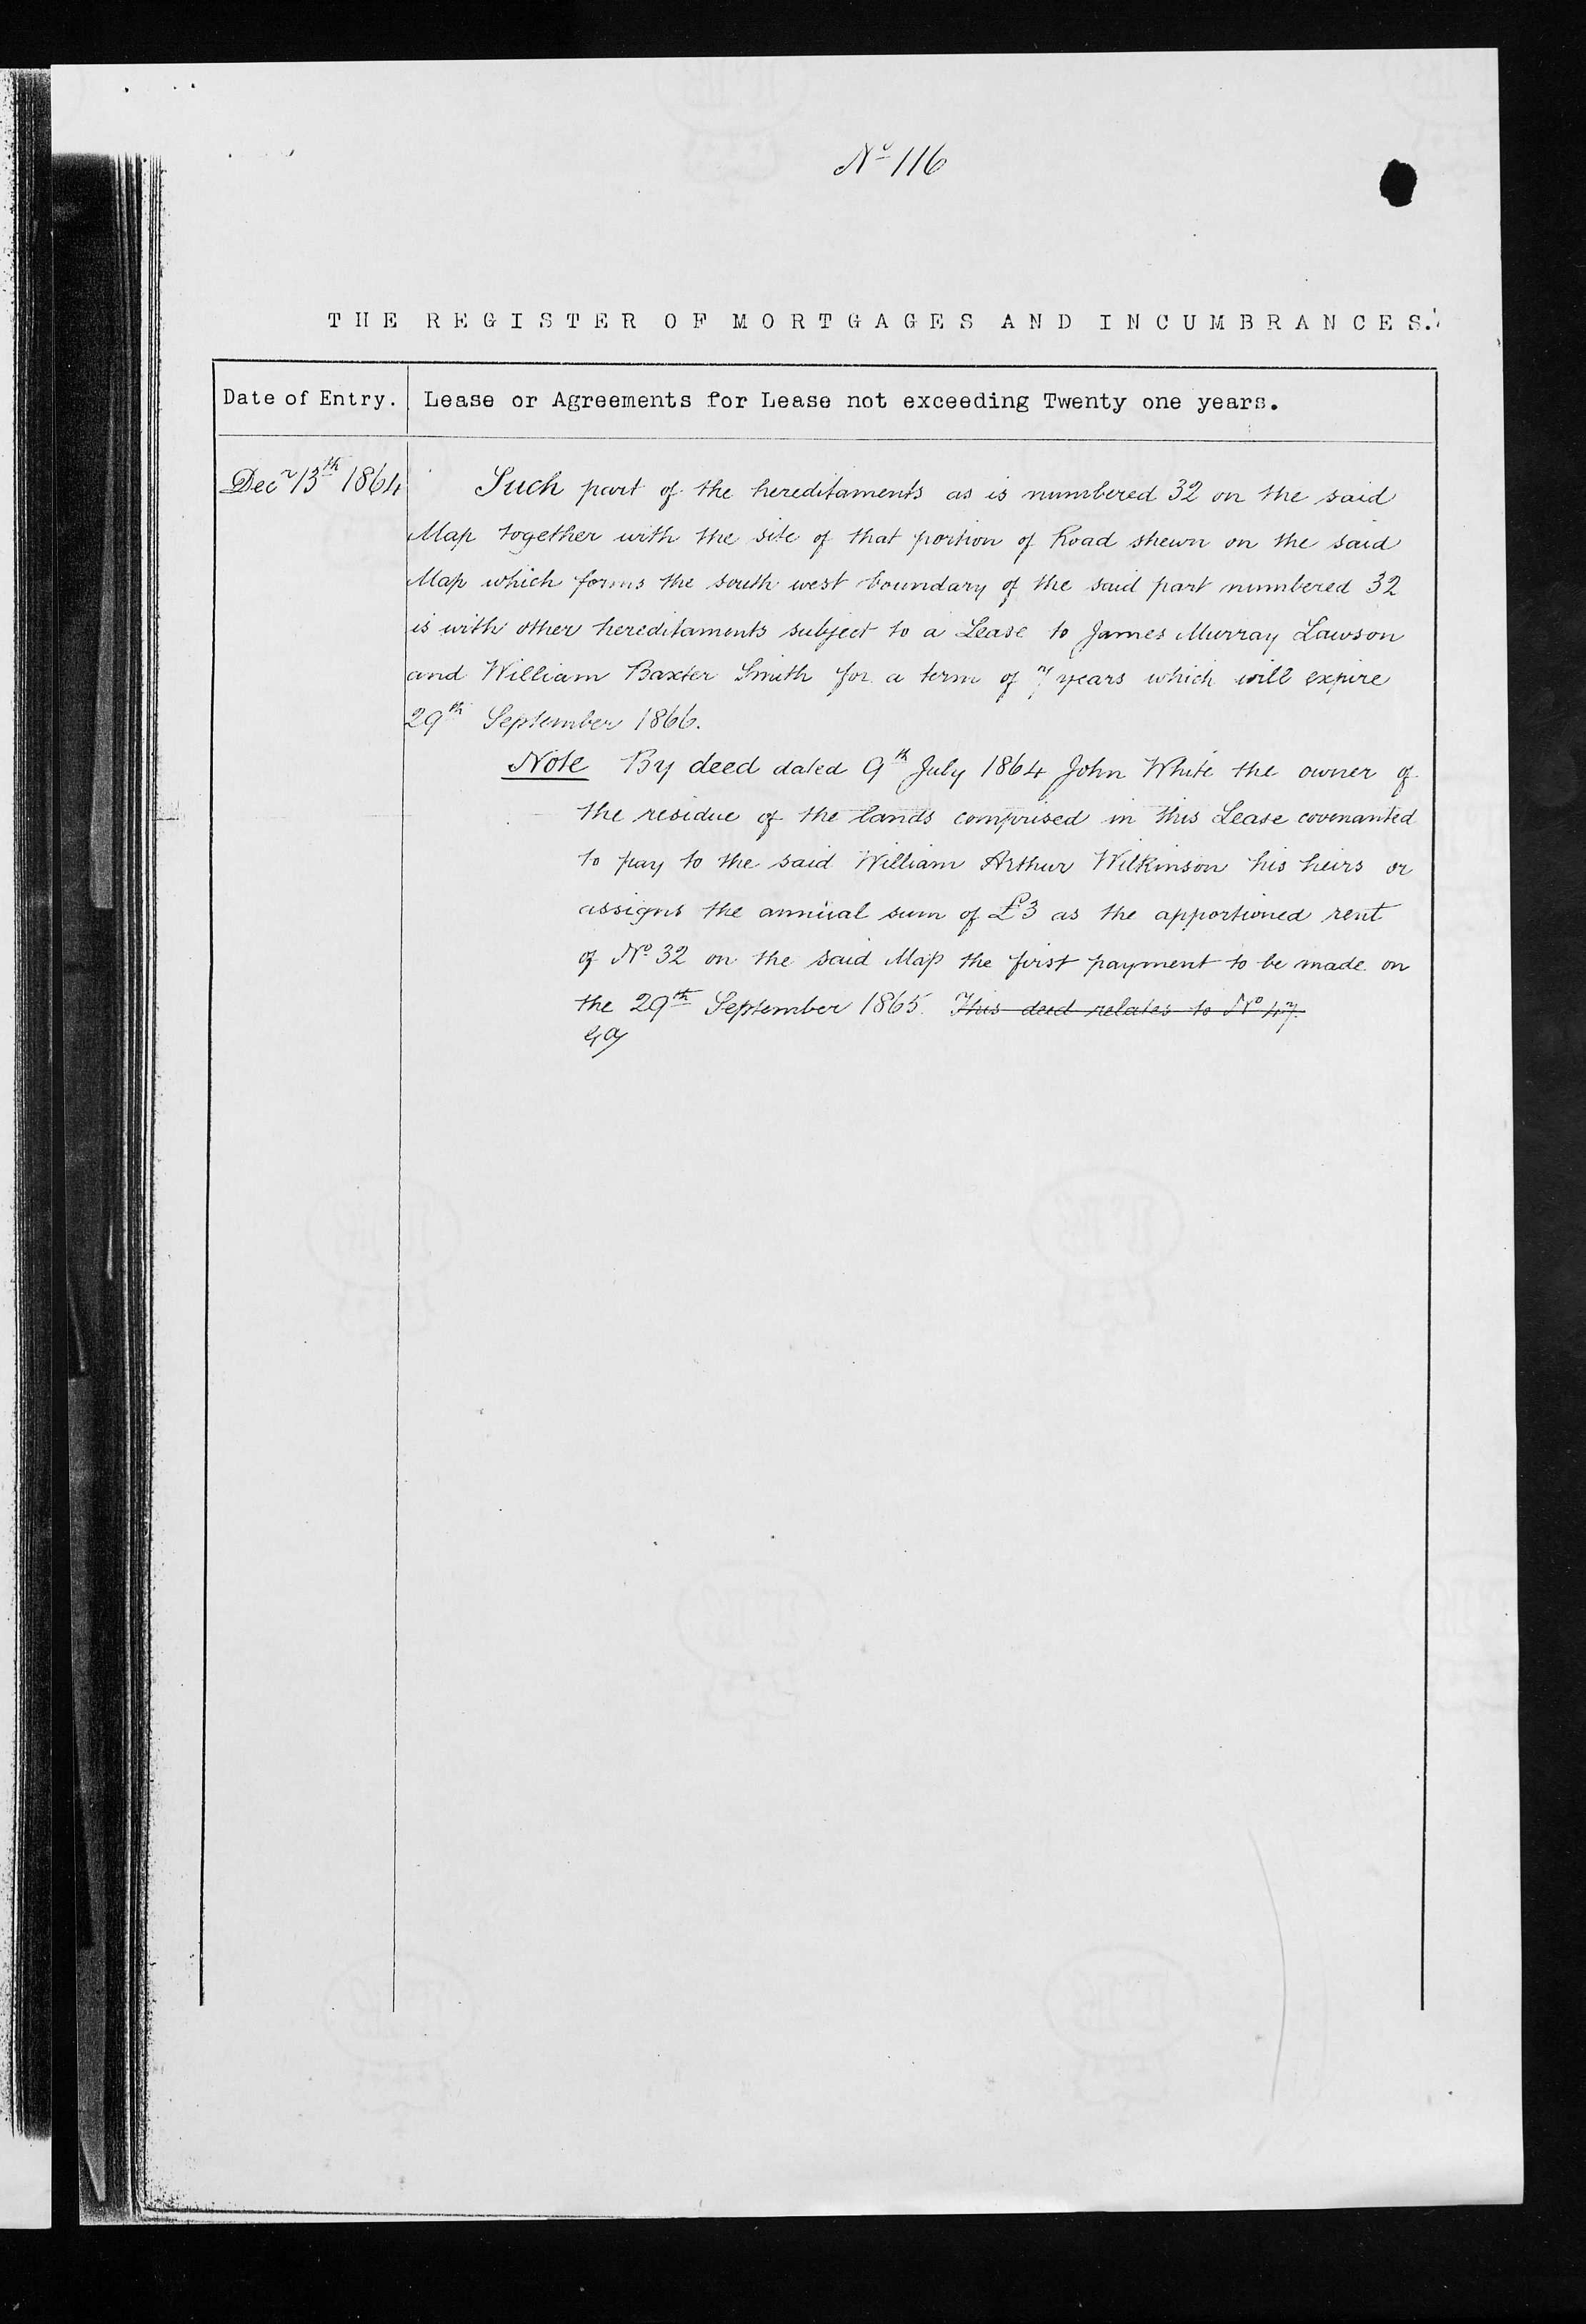 No 116
THE REGISTER OF MORTGAGES AND INCUMBRANCES.
Date of Entry. Lease or Agreements for Lease not exceeding Twenty one years.
Decr 13th 1864 Such part of the hereditaments as is numbered 32 on the said
Map together with the site of that portion of Road shewn on the said
Map which forms the south west boundary of the said part numbered 32
is with other hereditaments subject to a Lease to James Murray Lawson
and William Baxter Smith for a term of 7 years which will expire
29th September 1866.
Note By deed dated 9th July 1864 John White the owner of
the residue of the lands comprised in this Lease covenanted
to pay to the said William Arthur Wilkinson his heirs or
assigns the annual sum of £3 as the apportioned rent
of No 32 on the said Map the first payment to be made on
the 29th September 1865. This deed relates to No 47.